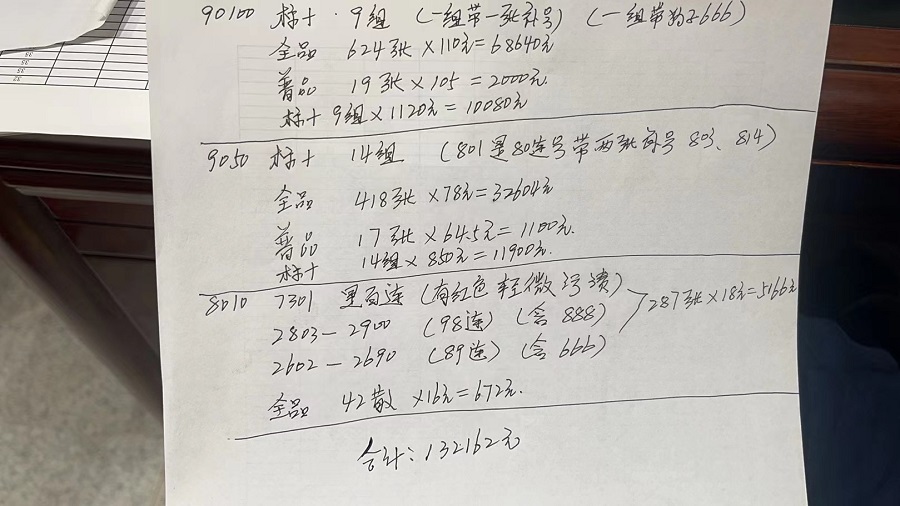 90100 标十 · 9组 (一组带一张补号) (一组带豹子666)
全品 624张×110元=68640元
普品 19张×105=2000元.
标十 9组×1120元=10080元
9050 标十 14组 (801是80连号带两张 号 803、814)
全品 418张×78元=32604元
普品 17张×64.5元=1100元.
标十 14组×850元=11900元.
8010 7301 里百连 (有红色轻微污渍)
2803-2900 (98连) (含888)
287张×18元=5166元
2602-2690 (89连) (含666)
全品 42散 ×16元=672元.
合计:132162元